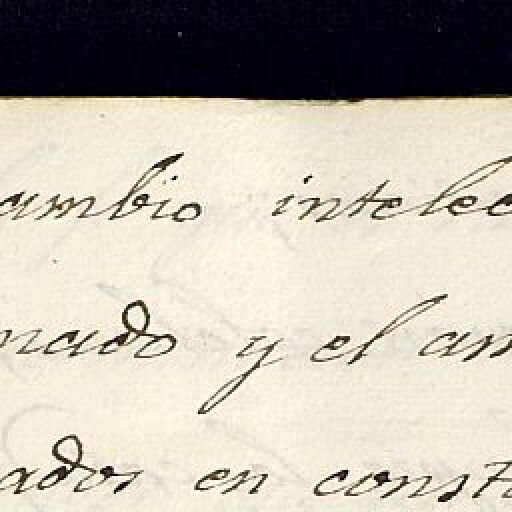 ambio intelec
nado y el am
ados en const